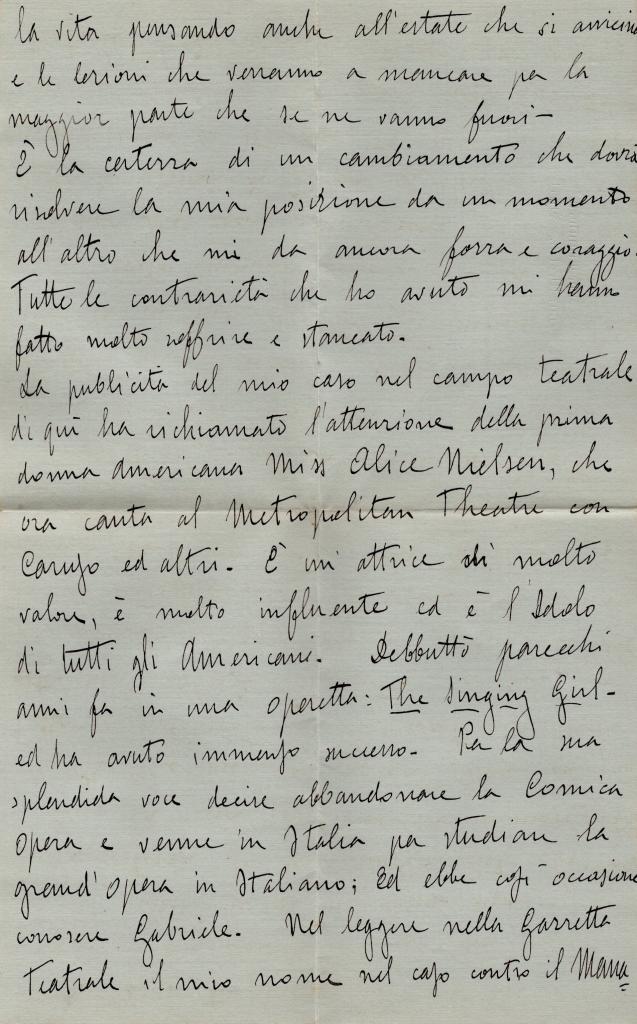 la vita pensando anche all'estate che si avvicina
e le lezioni che verranno a mancare per la
maggior parte che se ne vanno fuori —
È la certezza di un cambiamento che dovrà
risolvere la mia posizione da un momento
all'altro che mi da ancora forza e coraggio.
Tutte le contrarietà che ho avuto mi hanno
fatto molto soffrire e stancato.
La publicità del mio caso nel campo teatrale
di quì ha richiamato l'attenzione della prima
donna Americana Miss Alice Nielsen, che
ora canta al Metropolitan Theatre con
Caruso ed altri. È un'attrice di molto
valore, è molto influente ed è l'Idolo
di tutti gli Americani. Debbuttò parecchi
anni fa in una operetta: The Singing Girl -
ed ha avuto immenso successo. Per la sua
splendida voce decise abbandonare la Comica
Opera e venne in Italia per studiare la
grand'opera in Italiano; Ed ebbe così occasione
conoscere Gabriele. Nel leggere nella Gazzetta
Teatrale il mio nome nel caso contro il Mana